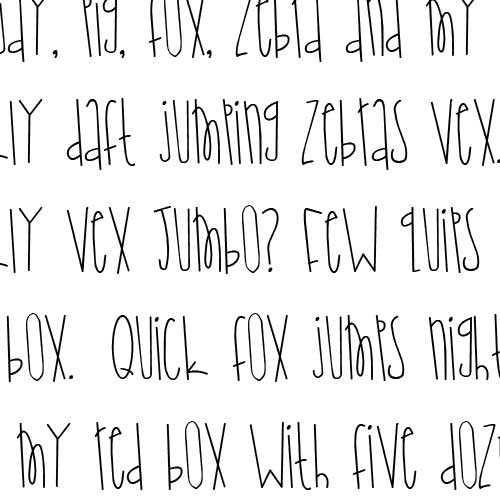 pig, fox, zebra and my
daft jumping zebras vex.
vex jumbo? Few quips
box. Quick fox jumps night
my red box with five doz